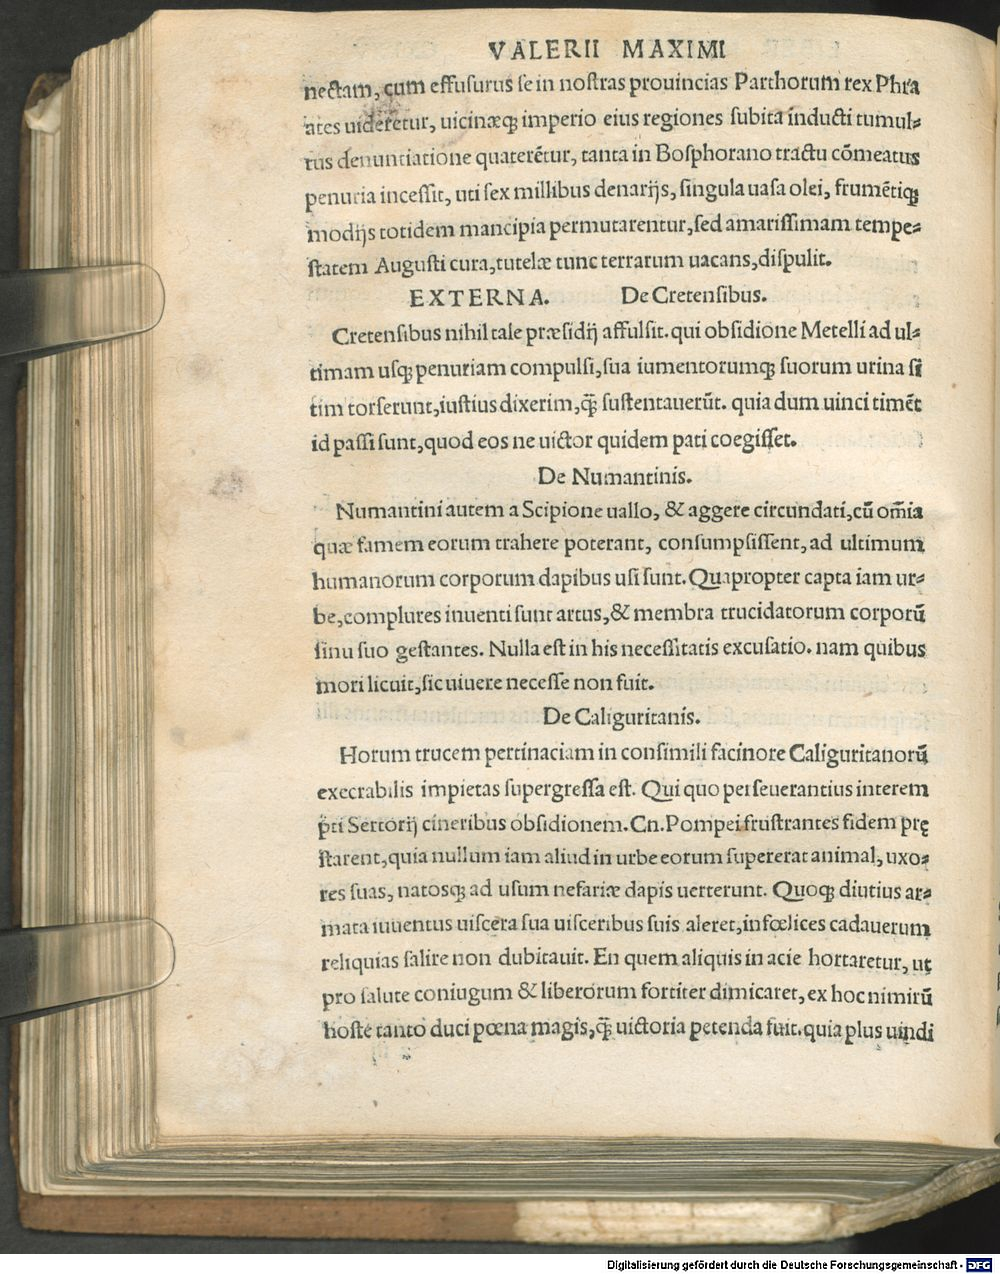 VALERII MAXIMI
nectam, cum effusurus se in nostras prouincias Parthorum rex Phra
ates uideretur, uicinæq; imperio eius regiones subita inducti tumul⸗
tus denuntiatione quaterētur, tanta in Bosphorano tractu cōmeatus
penuria incessit, uti sex millibus denarijs, singula uasa olei, frumētiq;
modijs totidem mancipia permutarentur, sed amarissimam tempe⸗
statem Augusti cura, tutelæ tunc terrarum uacans, dispulit.
EXTERNA. De Cretensibus.
Cretensibus nihil tale præsidij affulsit. qui obsidione Metelli ad ul⸗
timam usq; penuriam compulsi, sua iumentorumq; suorum urina si
tim torserunt, iustius dixerim, q̄ sustentauerūt. quia dum uinci timēt
id passi sunt, quod eos ne uictor quidem pati coegisset.
De Numantinis.
Numantini autem a Scipione uallo, & aggere circundati, cū om̄ia
quæ famem eorum trahere poterant, consumpsissent, ad ultimum
humanorum corporum dapibus usi sunt. Quapropter capta iam ur⸗
be, complures inuenti sunt artus, & membra trucidatorum corporū
sinu suo gestantes. Nulla est in his necessitatis excusatio. nam quibus
mori licuit, sic uiuere necesse non fuit.
De Caliguritanis.
Horum trucem pertinaciam in consimili facinore Caliguritanorū
execrabilis impietas supergressa est. Qui quo perseuerantius interem
p̄ti Sertorij cineribus obsidionem. Cn. Pompei frustrantes fidem prę
starent, quia nullum iam aliud in urbe eorum supererat animal, uxo⸗
res suas, natosq; ad usum nefariæ dapis uerterunt. Quoq; diutius ar⸗
mata iuuentus uiscera sua uisceribus suis aleret, infœlices cadauerum
reliquias salire non dubitauit. En quem aliquis in acie hortaretur, ut
pro salute coniugum & liberorum fortiter dimicaret, ex hoc nimirū
hoste tanto duci pœna magis, q̄ uictoria petenda fuit. quia plus uindi
Digitalisierung gefördert durch die Deutsche Forschungsgemeinschaft - DFG